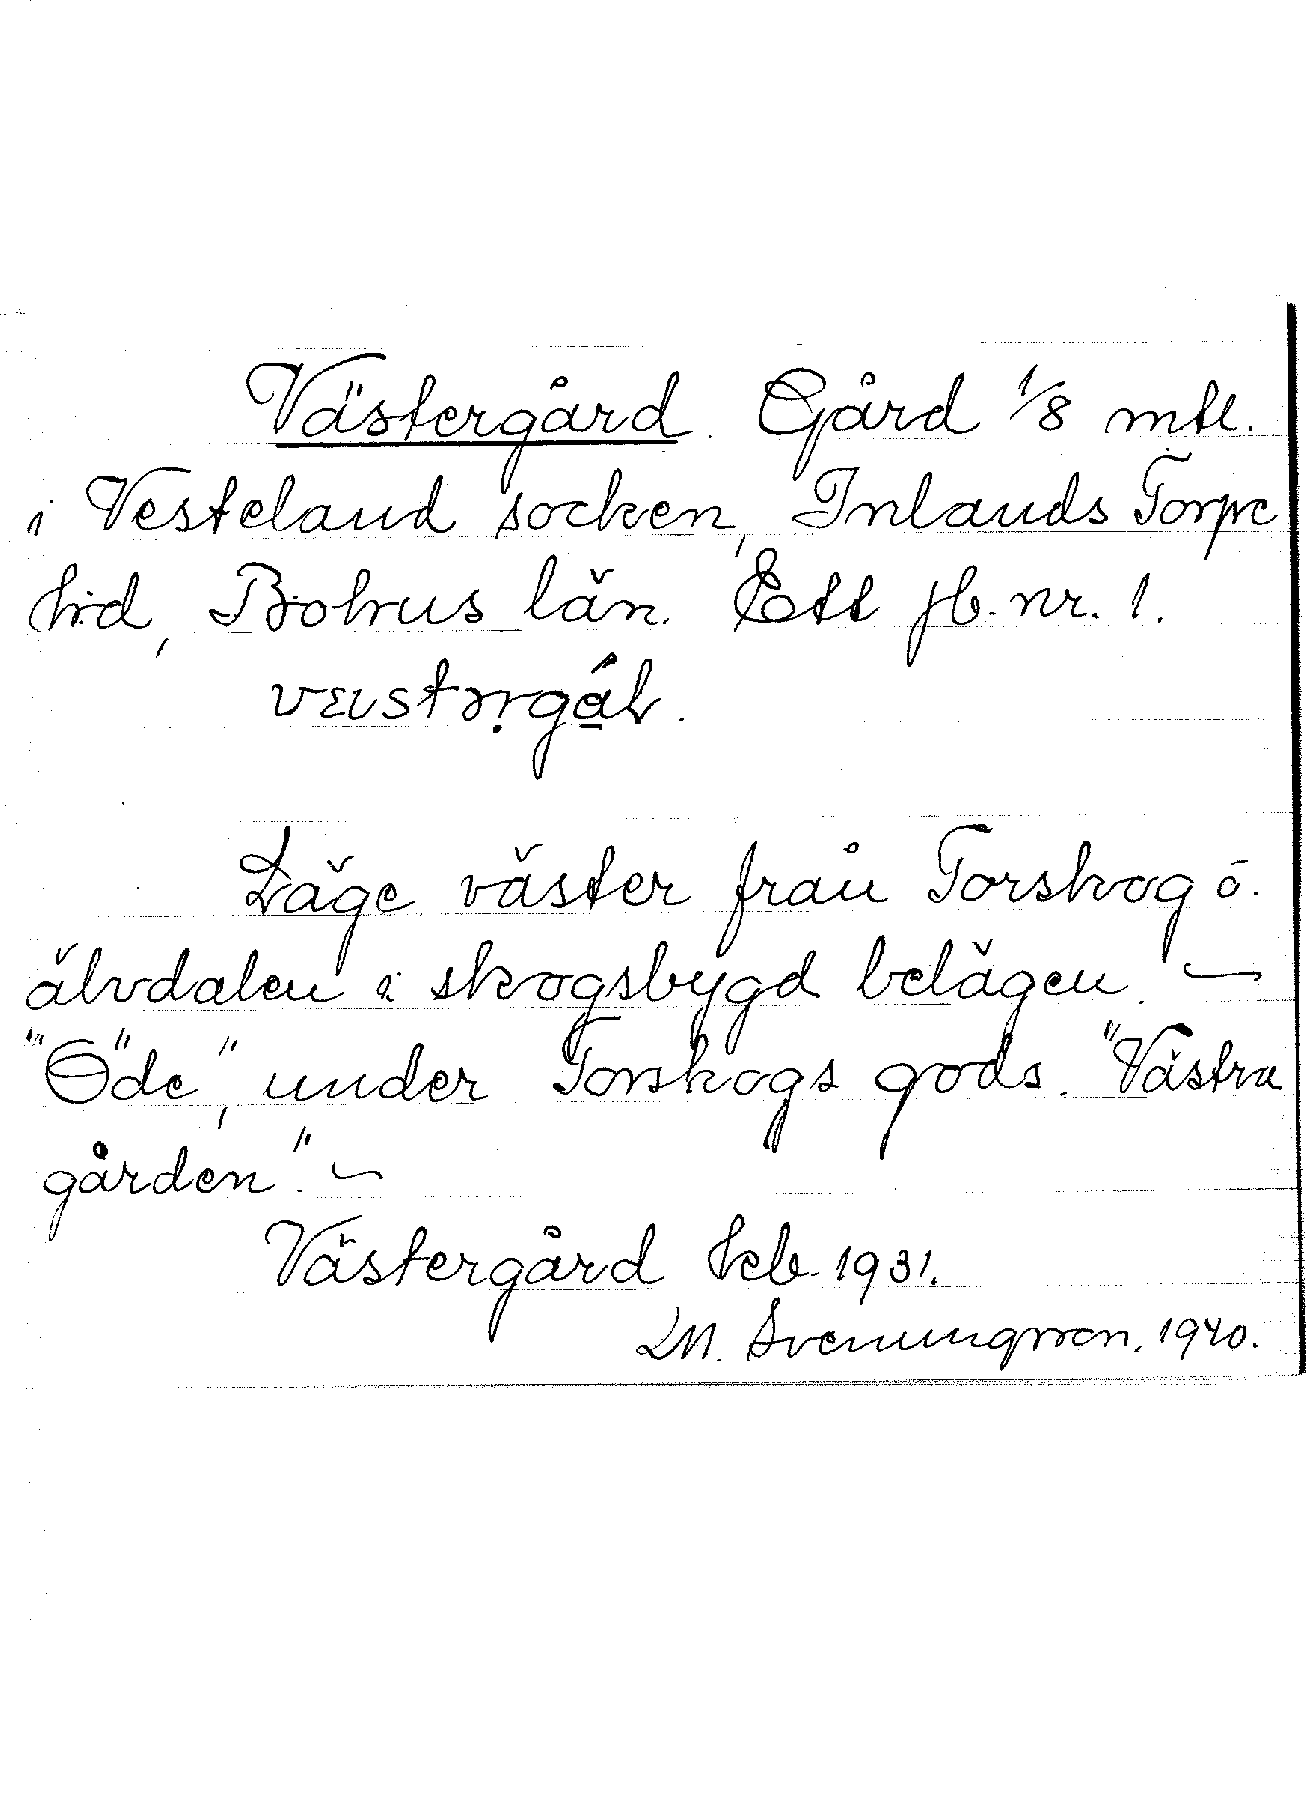 Västergård. Gård 1/8 mtl.
i Vesteland socken, Inlands Torpe
h:d, Bohus län. Ett jb. nr. 1.
Läge väster från Torskog o.
älvdalen i skogsbygd belägen. —
"Öde", under Torskogs gods. "Västra
gården". —
Västergård keb 1931.
M. Svenungsson. 1940.